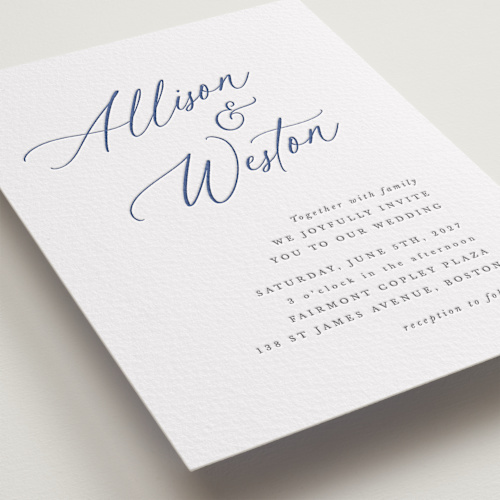 Allison
&
Weston
Together with family
WE JOYFULLY INVITE
YOU TO OUR WEDDING
SATURDAY, JUNE 5TH, 2027
3 o'clock in the afternoon
FAIRMONT COPLEY PLAZA
138 ST JAMES AVENUE, BOSTON
reception to